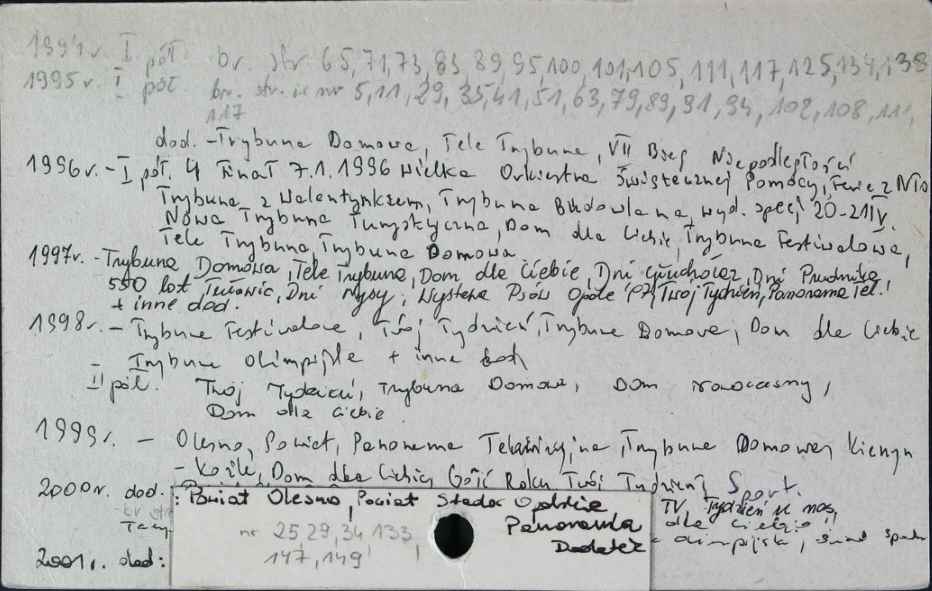 1994r. I pół. br. str. 65,71,73,83,89,95,100,101,105,111,117,125,134,138
1995r. I pół. br. str. ie nr 5,11,29,35,41,51,63,79,89,91,94,102,108,111,
117
dod. - Trybuna Domowa, Tele Trybuna, VII Bieg Niepodległości
1996r. - I pół. 4 Finał 7.1.1996 Wielka Orkiestra Świątecznej Pomocy, Ferie z NTO
Trybuna z Walentynkzem, Trybuna Budowlana, wyd. specj 20-21 IV.
Nowa Trybuna Turystyczna, Dom dla Ciebie, Trybuna Festiwalowa,
Tele Trybuna, Trybuna Domowa
1997r. - Trybuna Domowa, Tele Trybuna, Dom dla Ciebie, Dni Głuchołaz, Dni Prudnika
550 lat Tułowic, Dni Nysy, Wystawa Psów Opole 97, Twój Tydzień, Panorama Tel.
+ inne dod.
1998r. - Trybuna Festiwalowa, Twój Tydzień, Trybuna Domowa, Dom dla Ciebie
Trybuna Olimpijska + inne dod.
II pół. Twój Tydzień, Trybuna Domowa, Dom nowoczesny,
Dom dla Ciebie
1999r. - Olesno, Powiat, Panorama Telewizyjna, Trybuna Domowa, Kierun
- Koźle, Dom dla Ciebie, Gość Roku, Twój Tydzień, Sport.
2000r. dod. : Powiat Olesno, Powiat Stadoc Opolskie TV Tydzień u nas,
Panorama dla Ciebie
Dodatek olimpijski, świat
nr 25 29, 34 133,
147, 149
2001r. dod: